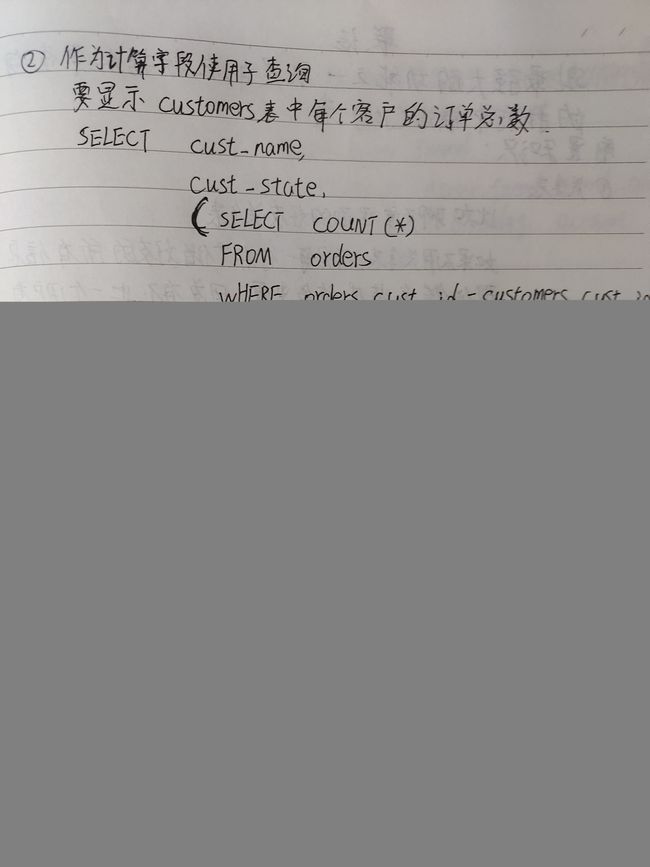 ② 作为计算字段使用子查询
要显示 customers表中每个客户的订单总数.
SELECT cust_name,
cust_state,
( SELECT COUNT(*)
FROM orders
WHERE orders cust_id = customers cust